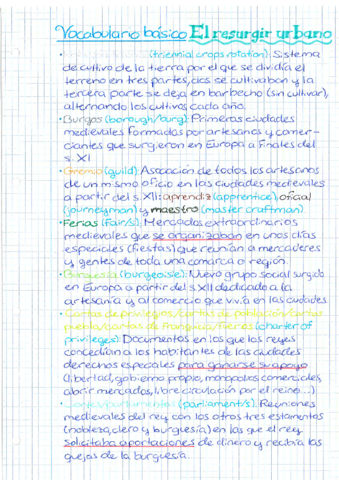 Vocabulario básico El resurgir urbano
(triennial crops rotation): Sistema
de cultivo de la tierra por el que se dividía el
terreno en tres partes, dos se cultivaban y la
tercera parte se deja en barbecho (sin cultivar),
alternando los cultivos cada año.
· Burgos (borough/burg): Primeras ciudades
medievales formadas por artesanos y comer-
ciantes que surgieron en Europa a finales del
s. XI
· Gremio (guild): Asociación de todos los artesanos
de un mismo oficio en las ciudades medievales
a partir del s. XII: aprendiz (apprentice), oficial
(journeyman) y maestro (master craftman).
· Ferias (Fairs): Mercados extraordinarios
medievales que se organizaban en unos días
especiales (fiestas) que reunían a mercaderes
y gentes de toda una comarca o región.
· Burguesía (burgeoisie): Nuevo grupo social surgido
en Europa a partir del s. XII dedicado a la
artesanía y al comercio que vivía en las ciudades
· Cartas de privilegios/cartas de población/cartas
pueblas/cartas de franquicia/fueros (charter of
privileges): Documentos en los que los reyes
concedían a los habitantes de las ciudades
derechos especiales para ganarse su apoyo
(libertad, gobierno propio, monopolios comerciales,
abrir mercados, libre circulación por el reino...)
(parliament/s): Reuniones
medievales del rey con los otros tres estamentos
(nobleza, clero y burguesía) en las que el rey
solicitaba aportaciones de dinero y recibía las
quejas de la burguesía